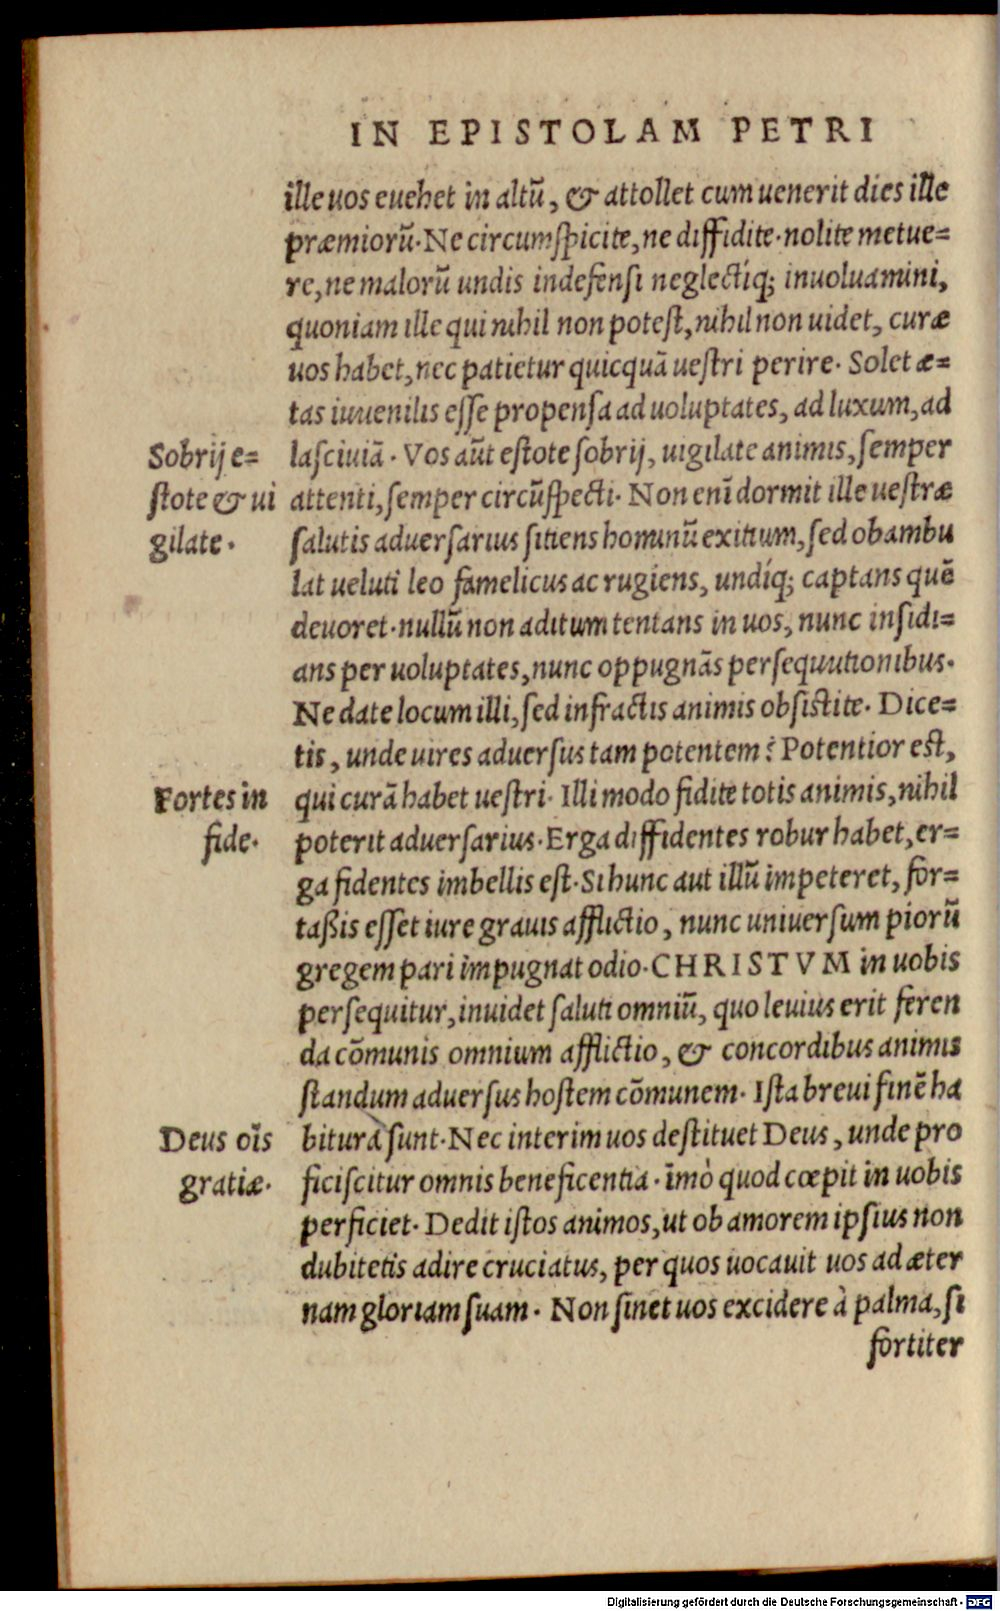 IN EPISTOLAM PETRI
ille uos euehet in altū, & attollet cum uenerit dies ille
præmiorū. Ne circumſpicite, ne diffidite. nolite metue=
re, ne malorū undis indefenſi neglectíq; inuoluamini,
quoniam ille qui nihil non poteſt, nihil non uidet, curæ
uos habet, nec patietur quicquā ueſtri perire. Solet æ=
tas iuuenilis eſſe propenſa ad uoluptates, ad luxum, ad
Sobrij e=
ſtote & ui
gilate.
laſciuiā. Vos aūt eſtote ſobrij, uigilate animis, ſemper
attenti, ſemper circūſpecti. Non enī dormit ille ueſtræ
ſalutis aduerſarius ſitiens hominū exitium, ſed obambu
lat ueluti leo famelicus ac rugiens, undíq; captans quē
deuoret. nullū non aditum tentans in uos, nunc inſidi=
ans per uoluptates, nunc oppugnās perſequutionibus.
Ne date locum illi, ſed infractis animis obſiſtite. Dice=
tis, unde uires aduerſus tam potentem? Potentior eſt,
Fortes in
fide.
qui curā habet ueſtri. Illi modo fidite totis animis, nihil
poterit aduerſarius. Erga diffidentes robur habet, er=
ga fidentes imbellis eſt. Si hunc aut illū impeteret, for=
taßis eſſet iure grauis afflictio, nunc uniuerſum piorū
gregem pari impugnat odio. CHRISTVM in uobis
perſequitur, inuidet ſaluti omniū, quo leuius erit feren
da cōmunis omnium afflictio, & concordibus animis
ſtandum aduerſus hoſtem cōmunem. Iſta breui finē ha
Deus oīs
gratiæ.
bitura ſunt. Nec interim uos deſtituet Deus, unde pro
ficiſcitur omnis beneficentia. īmò quod cœpit in uobis
perficiet. Dedit iſtos animos, ut ob amorem ipſius non
dubitetis adire cruciatus, per quos uocauit uos ad æter
nam gloriam ſuam. Non ſinet uos excidere à palma, ſi
fortiter
Digitalisierung gefördert durch die Deutsche Forschungsgemeinschaft - DFG